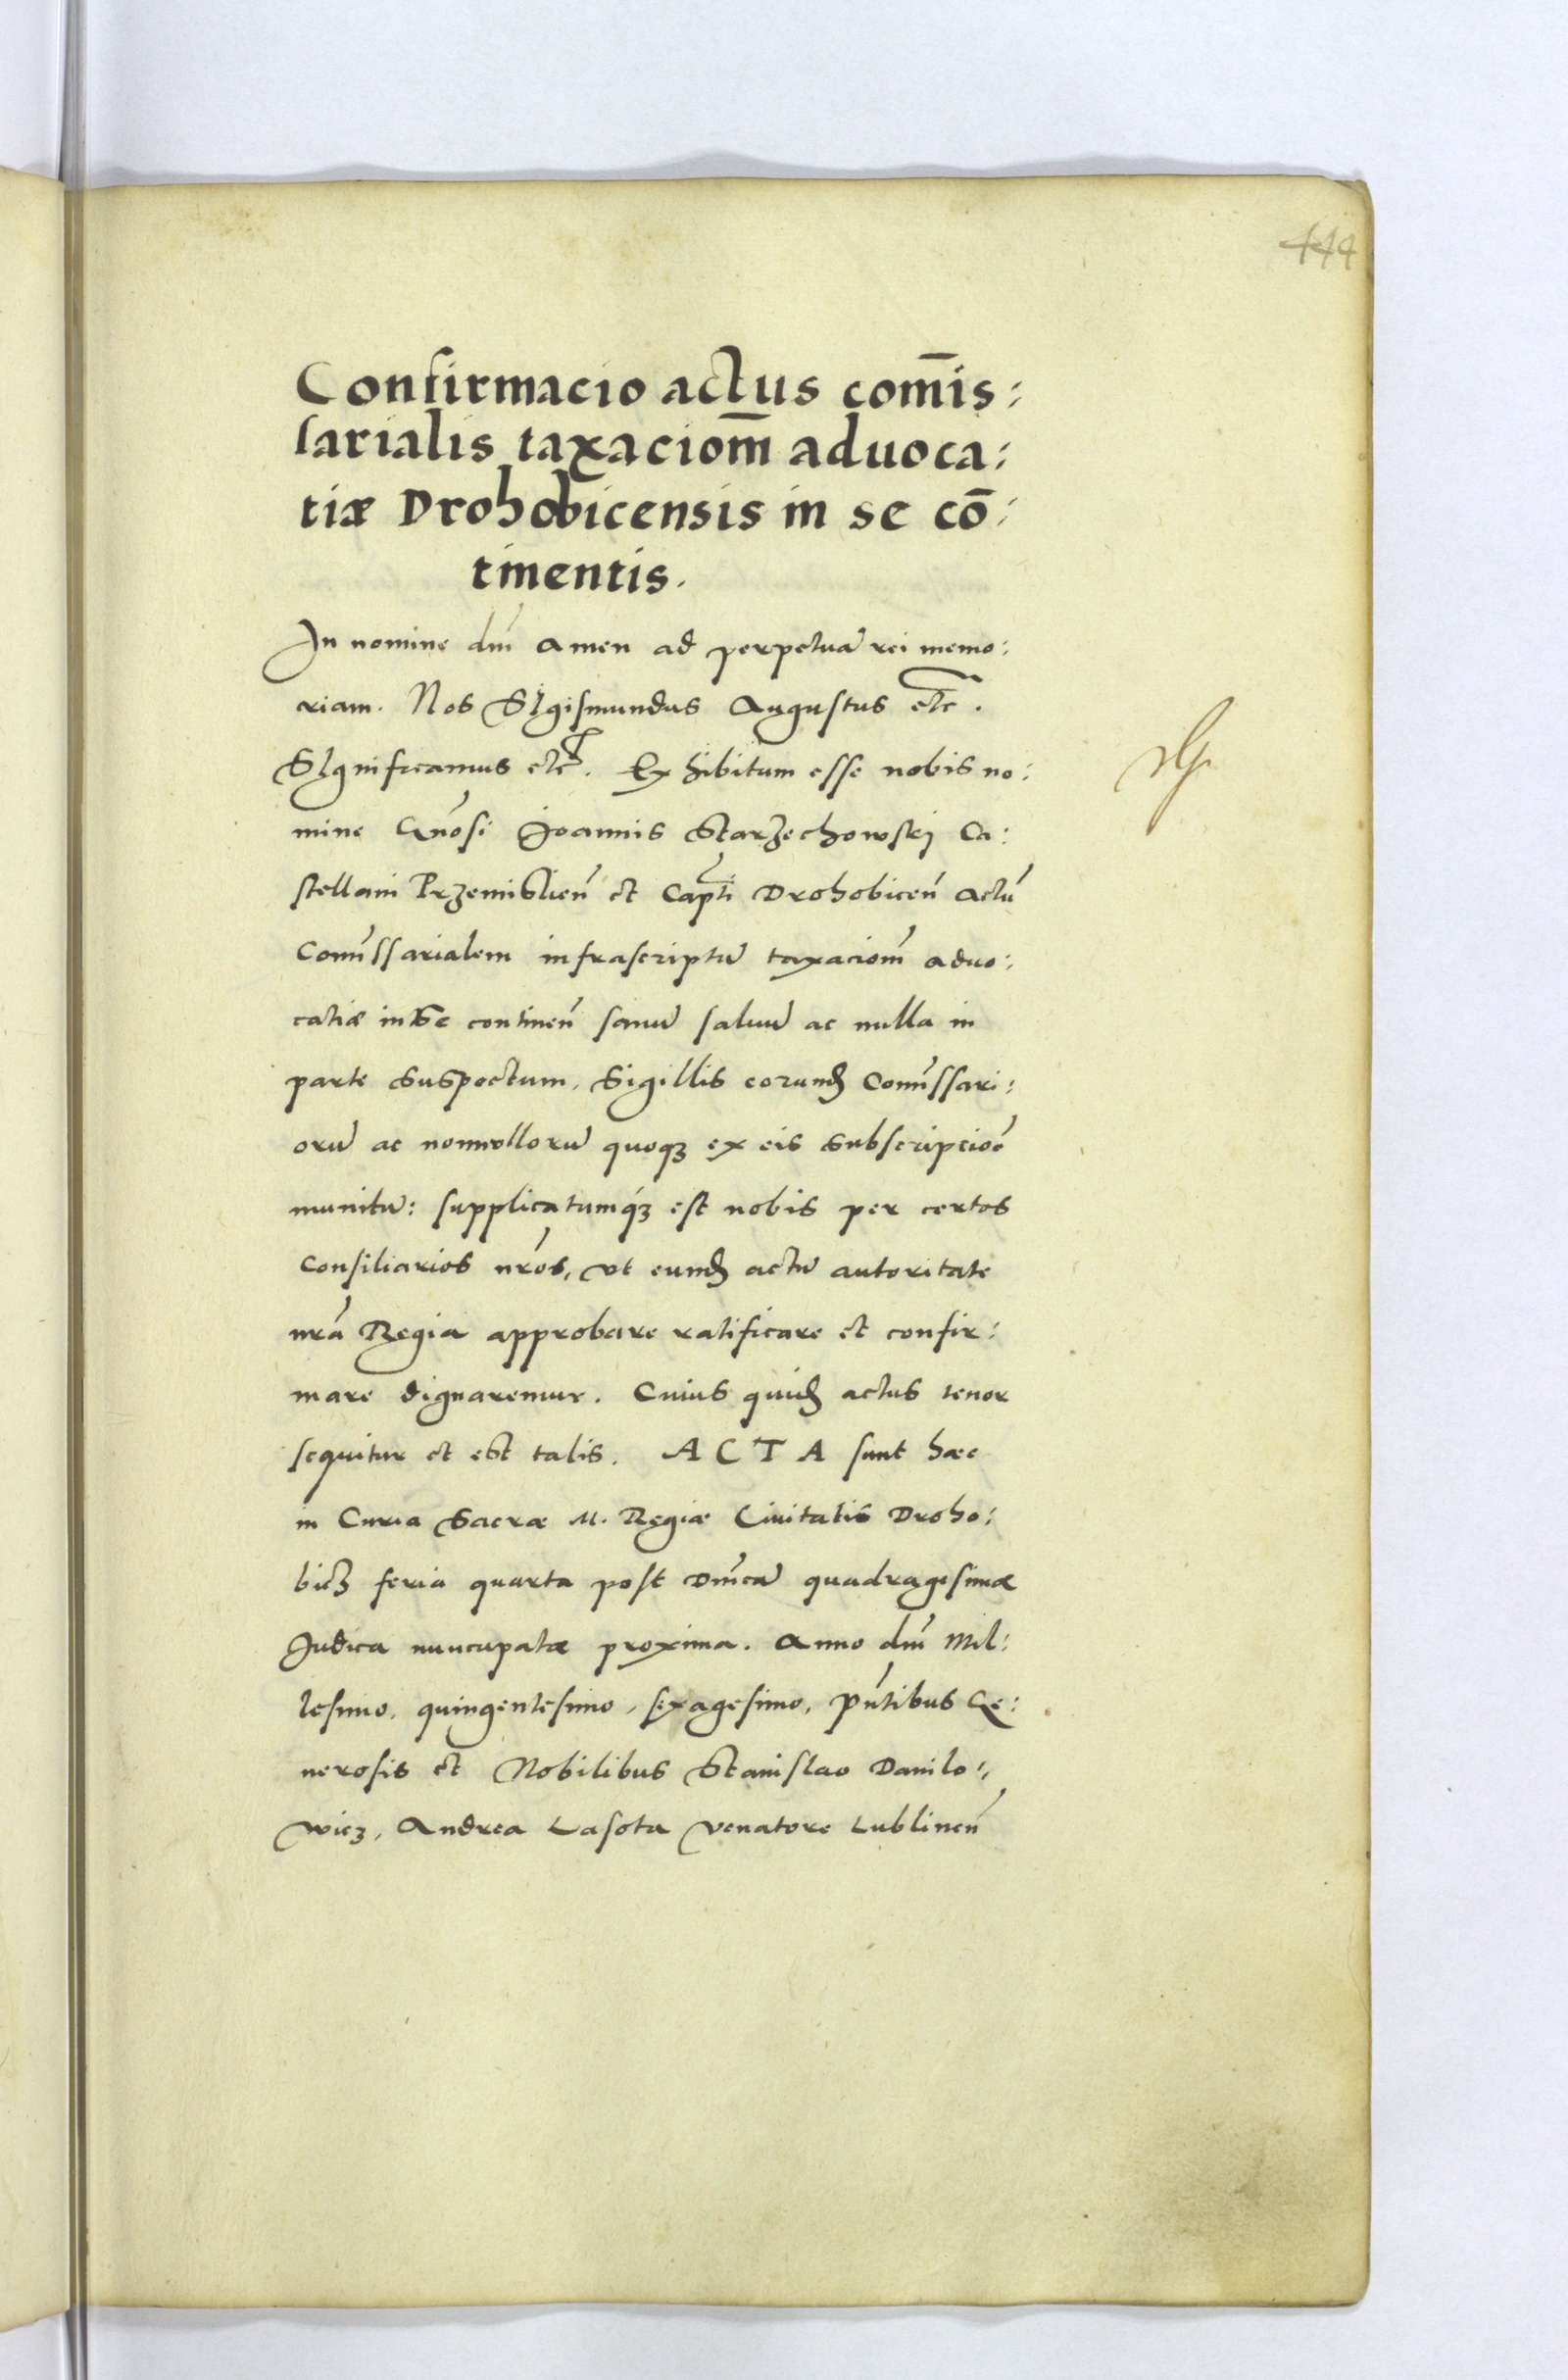 444
Confirmacio actus com̄is:
sarialis taxaciom̄ aduoca:
tiæ Drohobicensis in se cō:
tinentis.
In nomine dn̄i Amen ad perpetuā rei memo:
riam. Nos SIgismundus Augustus etc.
SIgnificamus etc. Exhibitum esse nobis no:
mine Gn̄osi Joannis Starzechowskj Ca:
stellani Przemislien̄ et Capt̄i Drohobicen̄ Actū
Com̄issarialem infrascriptū taxaciom̄ aduo:
catiæ in se continen̄ sanū saluū ac nulla in
parte suspectum, Sigillis eorundꝫ Com̄issari:
orū ac nonnollorū quoqꝫ ex eis subscripcioē
munitū: supplicatumqꝫ est nobis per certos
Consiliarios nr̄os, vt eundꝫ actū autoritate
nr̄a Regia approbare ratificare et confir:
mare dignaremur. Cuius quidꝫ actus tenor
sequitur et est talis. ACTA sunt hæc
in Curia Sacræ M. Regiæ Ciuitatis Droho:
bicꝫ feria quarta post Dn̄icā quadragesimæ
Judica nuncupatæ proxima. Anno dn̄i Mil:
lesimo, quingentesimo, sexagesimo, pn̄tibus Ge:
nerosis et Nobilibus Stanislao Danilo:
wicz, Andrea Lasota venatore Lublinen̄